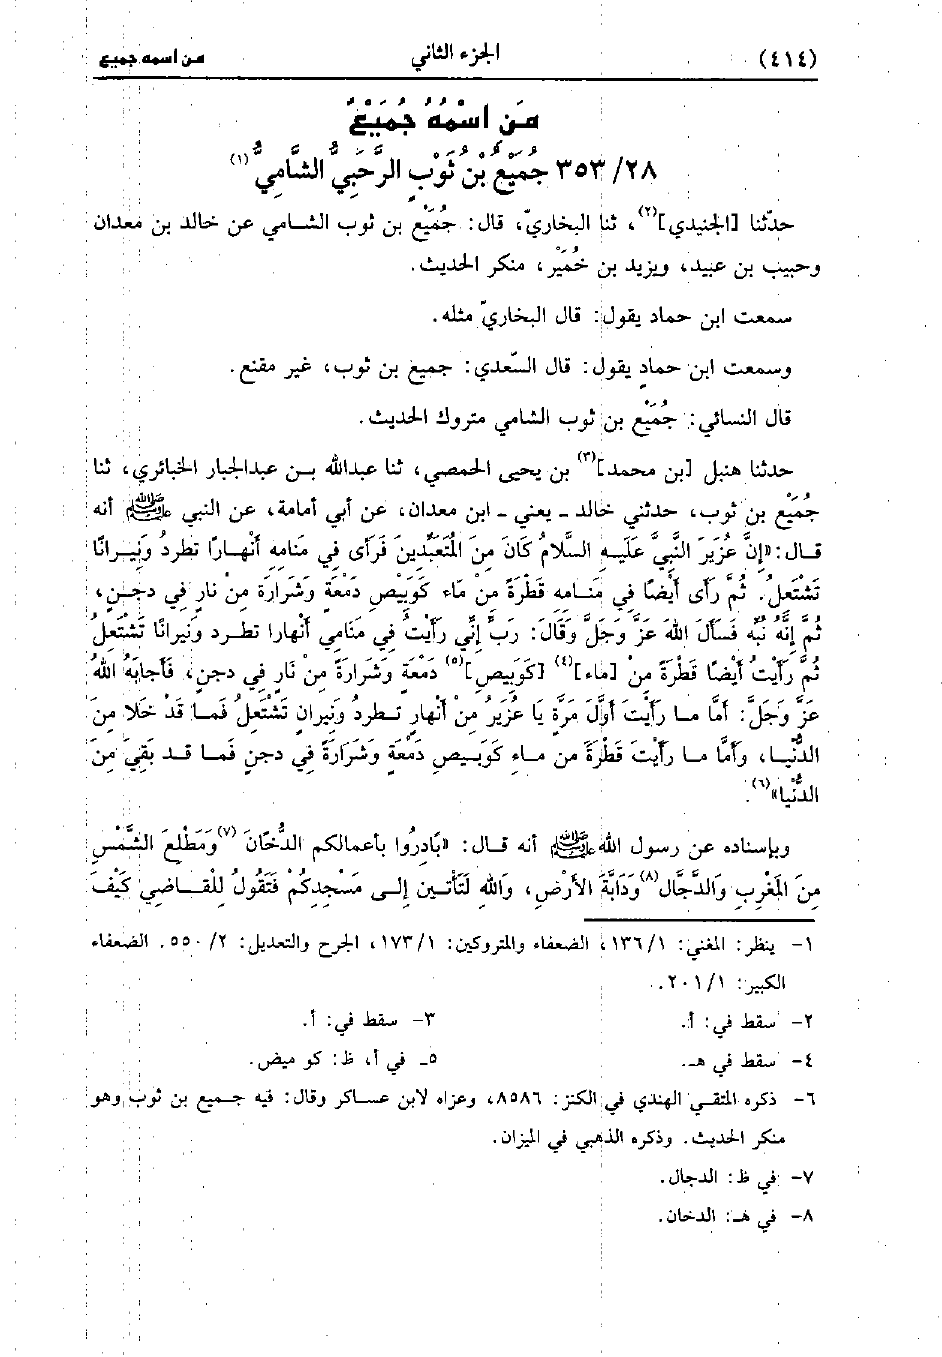 (٤١٤) الجزء الثاني من اسمه جميع
مَن اسْمُهُ جُمَيْعٌ
٣٥٣/٢٨ جُمَيْعُ بْنُ ثَوْبٍ الرَّحَبِيُّ الشَّامِيُّ(١)
حدّثنا [الجنيدي](٢)، ثنا البخاريّ، قال: جُمَيْع بن ثوب الشامي عن خالد بن معدان
وحبيب بن عبيد، ويزيد بن خُمَيْر، منكر الحديث.
سمعت ابن حماد يقول: قال البخاريّ مثله.
وسمعت ابن حمادٍ يقول: قال السّعدي: جميع بن ثوب، غير مقنع.
قال النسائي: جُمَيْع بن ثوب الشامي متروك الحديث.
حدثنا هنبل [بن محمد](٣) بن يحيى الحمصي، ثنا عبدالله بن عبدالجبار الخبائري، ثنا
جُمَيْع بن ثوب، حدثني خالد ـ يعني ـ ابن معدان، عن أبي أمامة، عن النبي ﷺ أنه
قال: «إنَّ عُزَيرَ النَّبِيَّ عَلَيهِ السَّلَامُ كَانَ مِنَ المُتَعَبِّدَينَ فَرَأى فِي مَنَامِهِ أَنْهارًا تطردُ وَنِيرانًا
تَشْتَعلُ. ثُمَّ رَأَى أَيْضًا في مَنامه قَطْرَةً منْ مَاء كَوَبيْصِ دَمْعَةٍ وَشَرارَةً مِنْ نارٍ في دجنٍ،
ثُمَّ إنَّهُ نُبِّهَ فَسَأَلَ اللهَ عَزَّ وَجَلَّ وَقَالَ: رَبِّ إنِّي رَأَيْتُ فِي مَنَامِي أنْهارا تطرد وَنيرانًا تَشْتَعلُ
ثُمَّ رَأَيْتُ أيْضًا قَطْرَةً مِنْ [ماء](٤) [كَوَبيص](٥) دَمْعَةٍ وَشَرارَةً مِنْ نَارٍ في دجنٍ، فَأَجابَهُ اللهُ
عَزَّ وَجَلَّ: أمَّا مـا رَأَيْتَ أوَّلَ مَرَّة يَا عُزَيرُ مِنْ أنْهارٍ تـطردُ وَنيران تَشْتَعلُ فَمـا قَدْ خَلَا مِنَ
الدُّنْيـا، وأمَّا مـا رَأَيْتَ قَطْرَةً من مـاءٍ كَوَبـيصِ دَمْعَةٍ وشَرارَةً في دجنٍ فَمـا قـد بَقِيَ مِنَ
الدُّنْيا»(٦).
وبإسناده عن رسول الله ﷺ أنه قـال: «بَادِرُوا بأعمالكم الدُّخَانَ(٧) وَمَطْلعَ الشَّمْسِ
مِنَ المَغْرِبِ وَالدَّجَّال(٨) وَدَابَّةَ الأرْضِ، وَاللهِ لَتَأتـين إلـى مَسْجِدِكُمْ فَتَقُولُ لِلْقـاضِي كَيْفَ
١- ينظر: المغني: ١٣٦/١، الضعفاء والمتروكين: ١٧٣/١، الجرح والتعديل: ٥٥٠/٢. الضعفاء
الكبير: ٢٠١/١.
٢- سقط في: أ. ٣- سقط في: أ.
٤- سقط في هـ. ٥- في أ، ظ: كو ميض.
٦- ذكره المتقي الهندي في الكنز: ٨٥٨٦، وعزاه لابن عساكر وقال: فيه جميع بن ثوب وهو
منكر الحديث. وذكره الذهبي في الميزان.
٧- في ظ: الدجال.
٨- في هـ: الدخان.